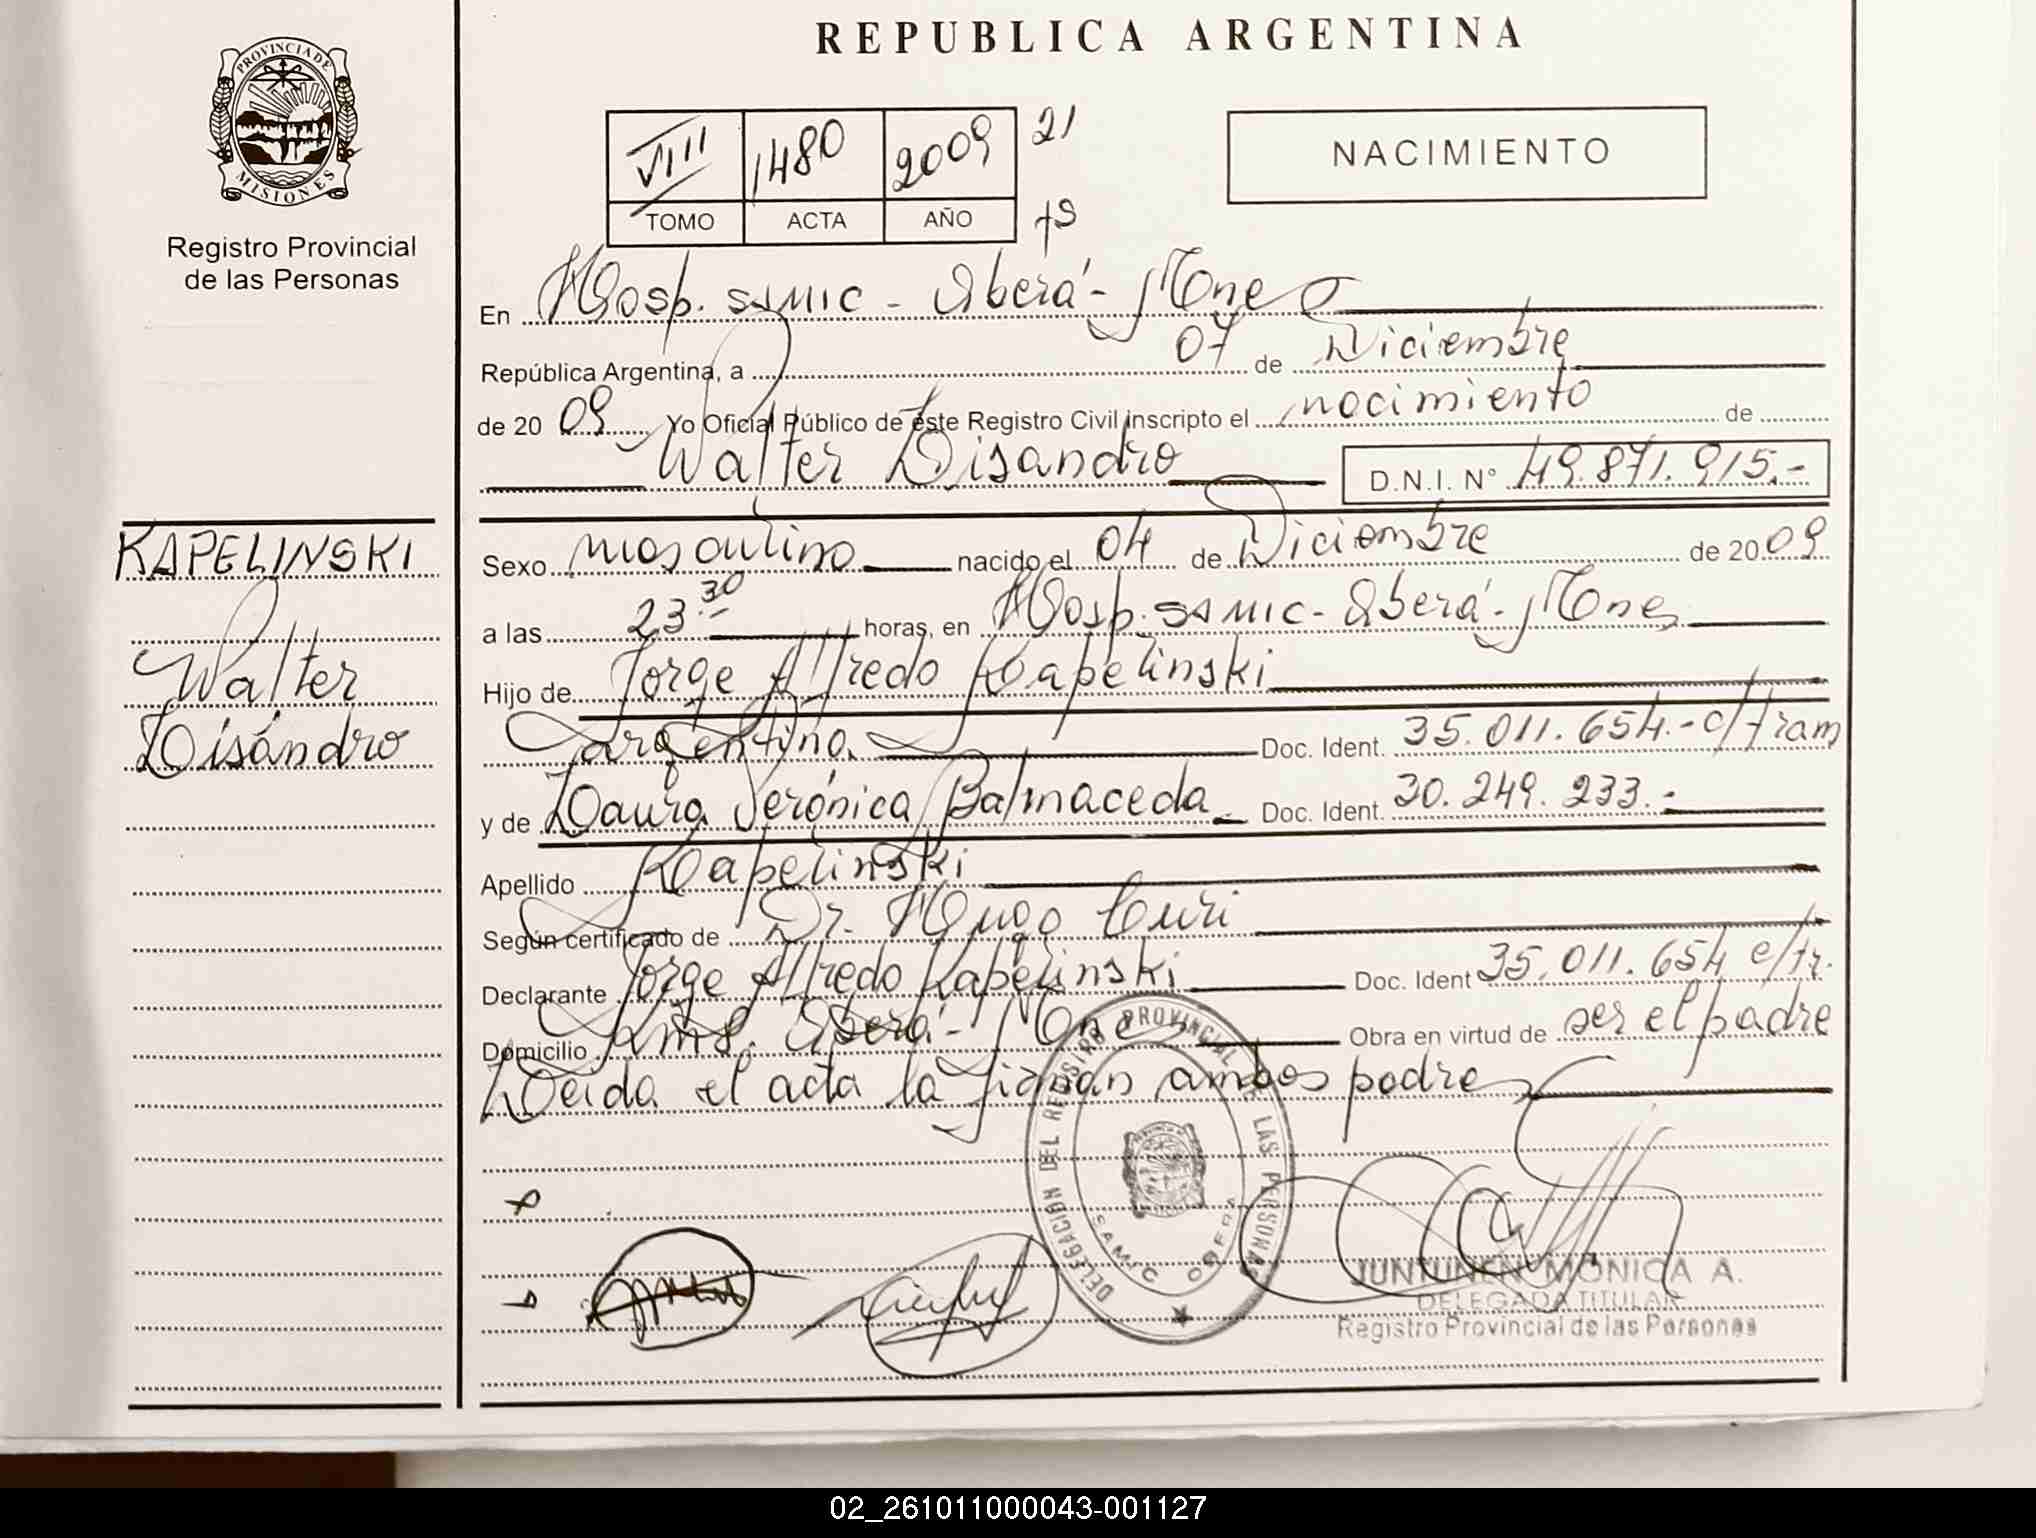 PROVINCIA DE
MISIONES
Registro Provincial
de las Personas
KAPELINSKI
Walter
Lisándro
REPUBLICA ARGENTINA
VIII 1480 2009 21
TOMO ACTA AÑO
NACIMIENTO
En Hosp. SAMIC - Oberá - Mnes
República Argentina, a 07 de Diciembre
de 2009 Yo Oficial Público de este Registro Civil inscripto el nacimiento de
Walter Lisandro D.N.I. N° 49.871.915.-
Sexo masculino nacido el 04 de Diciembre de 2009
a las 23.30 horas, en Hosp. SAMIC - Oberá - Mnes
Hijo de Jorge Alfredo Kapelinski
Argentino Doc. Ident. 35.011.654.- c/tram
y de Laura Verónica Balmaceda Doc. Ident. 30.249.233.-
Apellido Kapelinski
Según certificado de Dr. Hugo Curi
Declarante Jorge Alfredo Kapelinski Doc. Ident 35.011.654 c/tr.
Domicilio Kms. Oberá - Mnes Obra en virtud de ser el padre
Leida el acta la firman ambos padres
DELEGACION DEL REGISTRO PROVINCIAL DE LAS PERSONAS
SAMIC OBERA
JUNTUNEN MONICA A.
DELEGADA TITULAR
Registro Provincial de las Personas
02_261011000043-001127